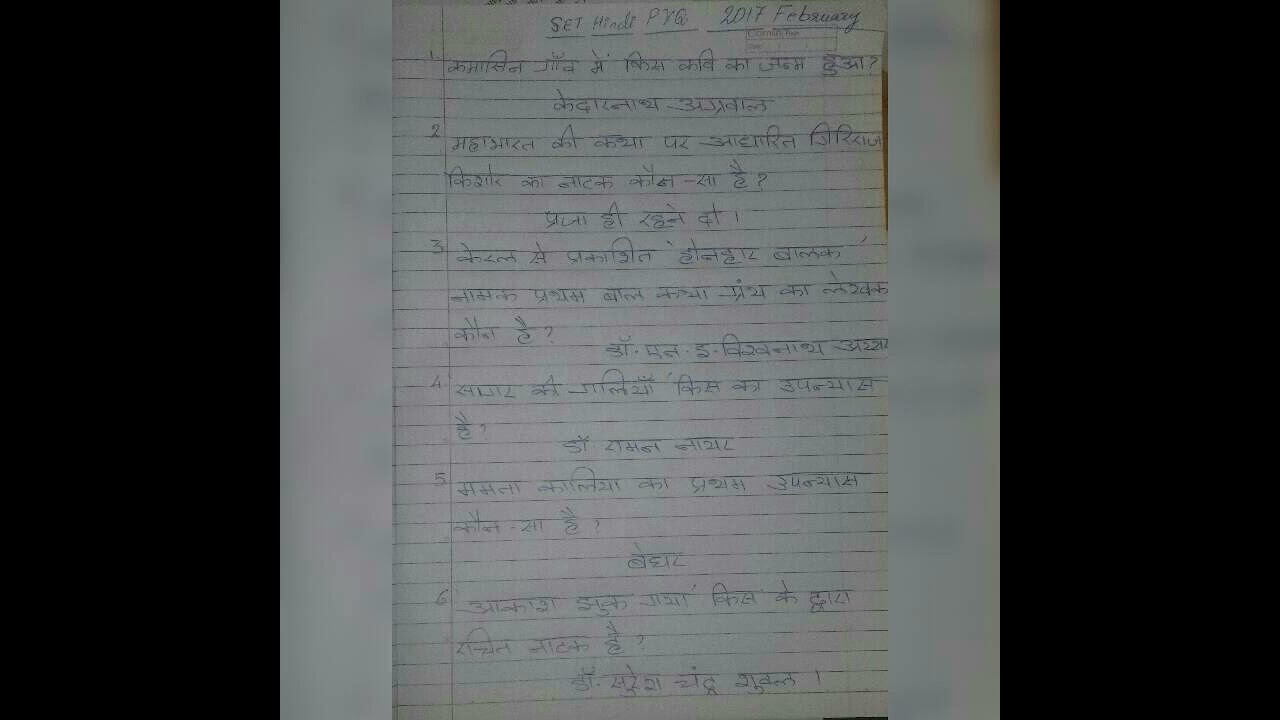 SET Hindi PYQ 2017 February
1 कमासिन गाँव में किस कवि का जन्म हुआ?
केदारनाथ अग्रवाल
2 महाभारत की कथा पर आधारित गिरिराज
किशोर का नाटक कौन-सा है?
प्रजा ही रहने दो।
3 केरल से प्रकाशित 'होनहार बालक'
नामक प्रथम बाल कथा ग्रंथ का लेखक
कौन है?
डॉ. एन. इ. विश्वनाथ अय्यर
4 सागर की गलियाँ' किस का उपन्यास
है?
डॉ रामन नायर
5 ममता कालिया का प्रथम उपन्यास
कौन-सा है?
बेघर
6 आकाश झुक गया' किस के द्वारा
रचित नाटक है?
डॉ. सुरेश चंद्र शुक्ल।